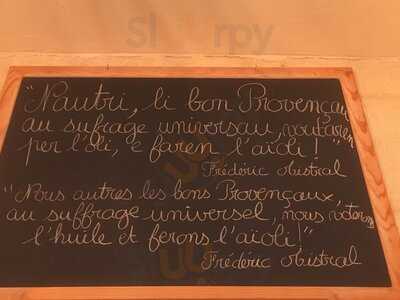 Slurrpy
"Nautri, li bon Provençau
au sufrage universau, voutaren
per l'òli, e faren l'aiòli !"
Frédéric Mistral
"Nous autres les bons Provençaux,
au suffrage universel, nous voterons
l'huile et ferons l'aïoli !"
Frédéric Mistral